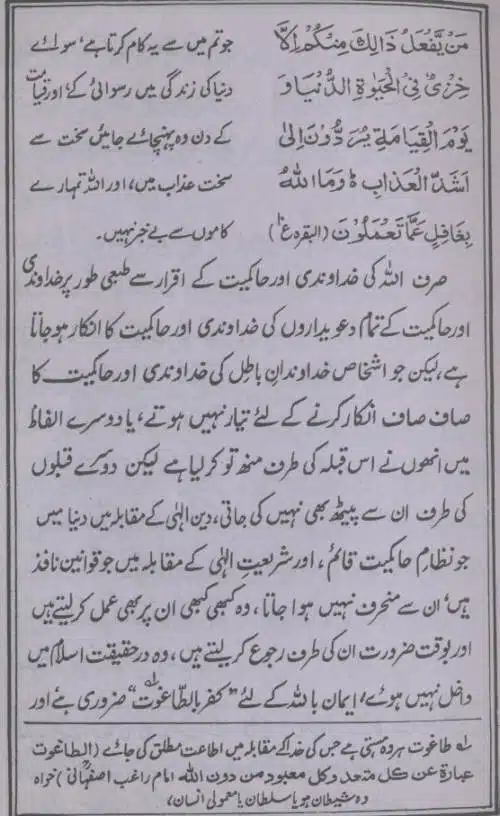 مَنْ يَّفْعَلُ ذَالِكَ مِنْكُمْ اِلَّا جو تم میں سے یہ کام کرتا ہے، سوائے
خِزْیٌ فِی الْحَیٰوۃِ الدُّنْیَا وَ دنیا کی زندگی میں رسوائی کے، اور قیامت
یَوْمَ الْقِیَامَۃِ یُرَدُّوْنَ اِلیٰ کے دن وہ پہنچائے جائیں سخت سے
اَشَدِّ الْعَذَابِ ؕ وَمَا اللّٰہُ سخت عذاب میں، اور اللہ تمہارے
بِغَافِلٍ عَمَّا تَعْمَلُوْنَ (البقرہ ع۱۰) کاموں سے بے خبر نہیں۔
صرف اللہ کی خداوندی اور حاکمیت کے اقرار سے طبعی طور پر خداوندی
اور حاکمیت کے تمام دعویداروں کی خداوندی اور حاکمیت کا انکار ہو جاتا
ہے، لیکن جو اشخاص خداوندانِ باطل کی خداوندی اور حاکمیت کا
صاف صاف انکار کرنے کے لئے تیار نہیں ہوتے، یا دوسرے الفاظ
میں انھوں نے اس قبلہ کی طرف منھ تو کر لیا ہے لیکن دوسرے قبلوں
کی طرف ان سے پیٹھ بھی نہیں کی جاتی، دین الٰہی کے مقابلہ میں دنیا میں
جو نظامِ حاکمیت قائم، اور شریعتِ الٰہی کے مقابلہ میں جو قوانین نافذ
ہیں، ان سے منحرف نہیں ہوا جاتا، وہ کبھی کبھی ان پر بھی عمل کر لیتے ہیں
اور بوقت ضرورت ان کی طرف رجوع کر لیتے ہیں، وہ درحقیقت اسلام میں
داخل نہیں ہوئے، ایمان باللہ کے لئے "کفر بالطّاغوت"ؕلہ ضروری ہے اور
لہ طاغوت ہر وہ ہستی ہے جس کی خدا کے مقابلہ میں اطاعت مطلق کی جائے (الطاغوت
عبارۃ عن کل متعد وکل معبود من دون اللہ امام راغب اصفہانی) خواہ
وہ شیطان ہو یا سلطان یا معمولی انسان،